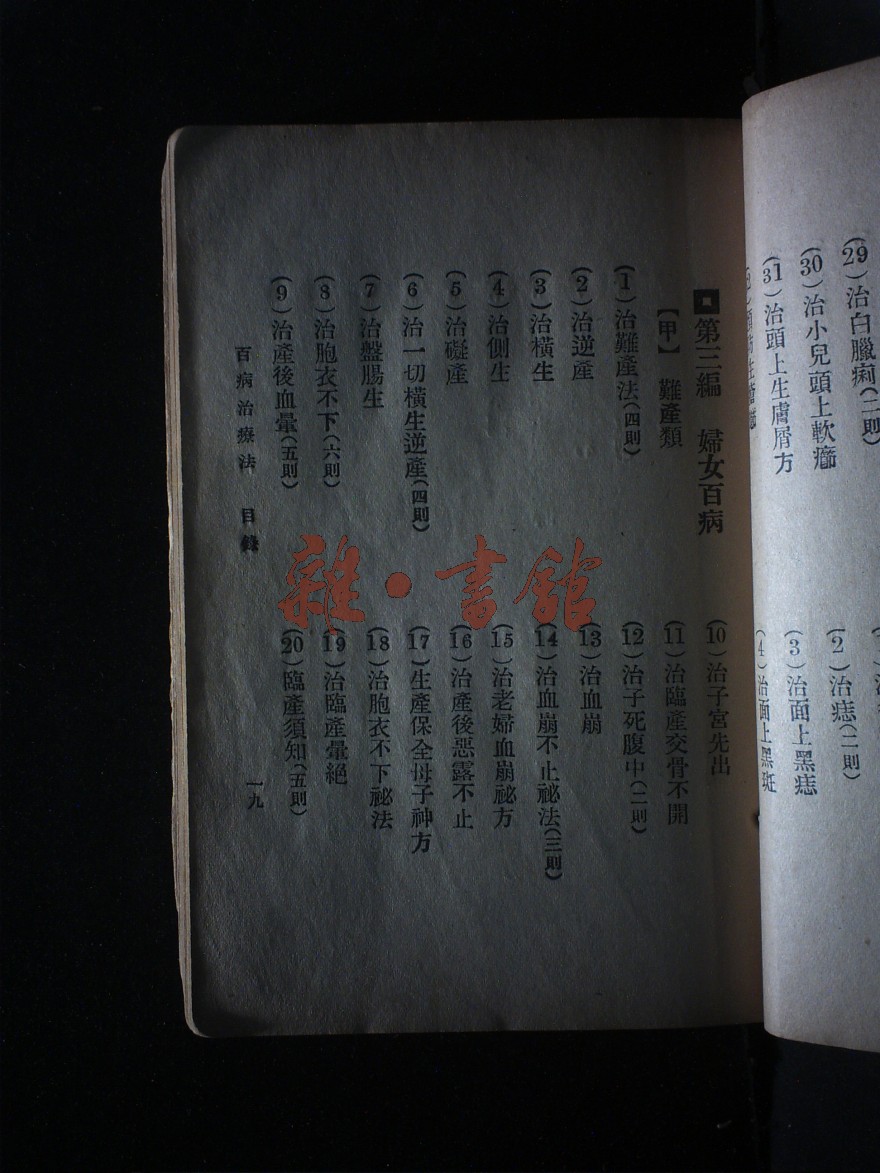 (29) 治白臘痢(二則)
(30) 治小兒頭上軟癤
(31) 治頭上生膚屑方
(2) 治痣(二則)
(3) 治面上黑痣
(4) 治面上黑斑
第三編 婦女百病
【甲】 難產類
(1) 治難產法(四則)
(2) 治逆產
(3) 治橫生
(4) 治側生
(5) 治礙產
(6) 治一切橫生逆產(四則)
(7) 治盤腸生
(8) 治胞衣不下(六則)
(9) 治產後血暈(五則)
(10) 治子宮先出
(11) 治臨產交骨不開
(12) 治子死腹中(二則)
(13) 治血崩
(14) 治血崩不止祕法(三則)
(15) 治老婦血崩祕方
(16) 治產後惡露不止
(17) 生產保全母子神方
(18) 治胞衣不下祕法
(19) 治臨產暈絕
(20) 臨產須知(五則)
百病治療法 目錄
一九
雜·書館